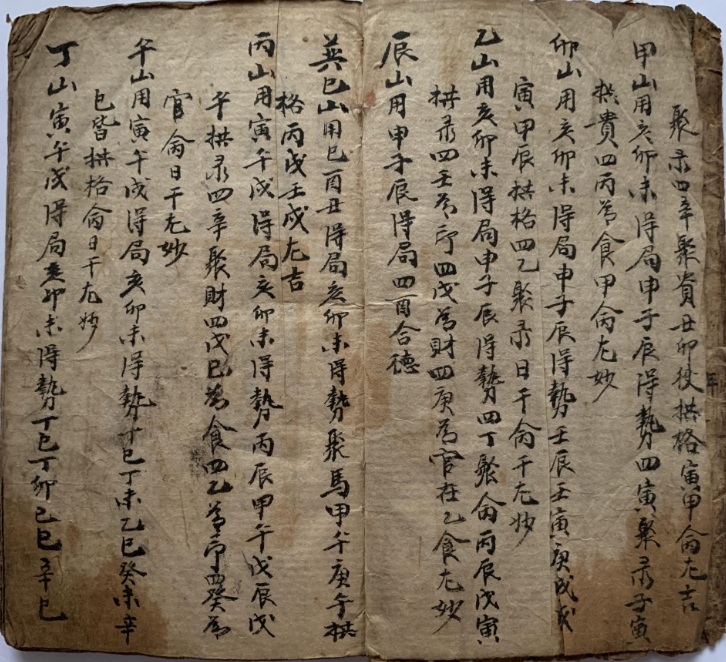 聚录四辛聚貴丑卯後拱格寅甲侖尤吉
甲山用亥卯未得局申子辰得勢四寅聚录子寅
拱貴四丙為食甲侖尤妙
卯山用亥卯未得局申子辰得勢壬辰壬寅庚戌戌
寅甲辰拱格四乙聚录日干侖干尤妙
乙山用亥卯未得局申子辰得勢四丁聚侖丙辰戊寅
拱录四壬為印四戊為財四庚為官在乙食尤妙
辰山用申子辰得局四酉合德
巽巳山用巳酉丑得局亥卯未得勢聚馬甲午庚午拱
格丙戌壬戌尤吉
丙山用寅午戌得局亥卯未得勢丙辰甲午戊辰戊
午拱录四辛聚財四戊巳為食四乙為印四癸為
官侖日干尤妙
午山用寅午戌得局亥卯未得勢丁巳丁未乙巳癸未辛
巳皆拱格侖日干尤妙
丁山寅午戌得局亥卯未得勢丁巳丁卯己巳辛巳